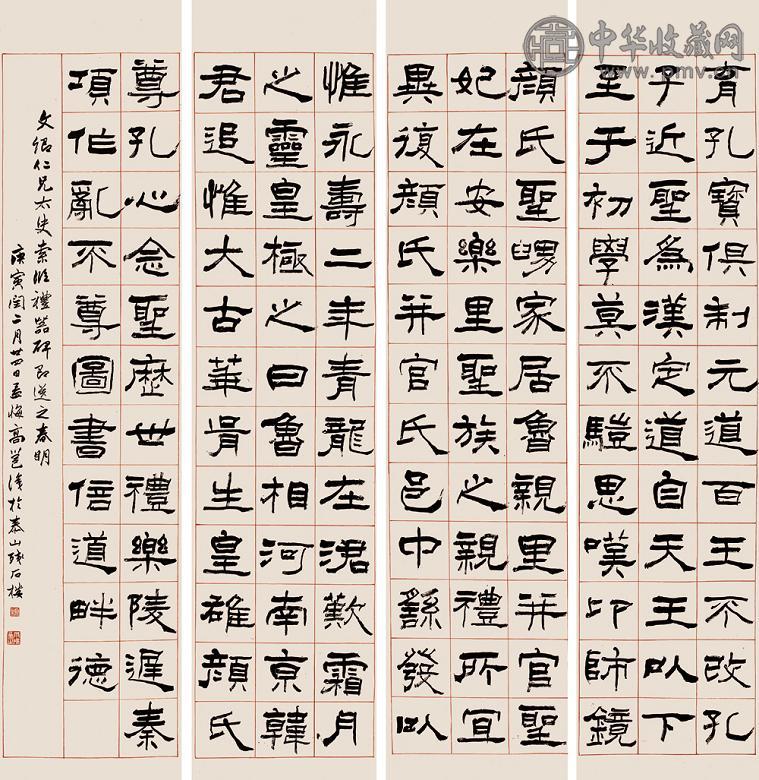 中华收藏网
育孔寶俱制元道百王不改孔
子近聖為漢定道自天王以下
至于初學莫不驥思嘆卬師鏡
顏氏聖舅家居魯親里并官聖
妃在安樂里聖族之親禮所宜
異復顏氏并官氏邑中繇發以
惟永壽二年青龍在涒歎霜月
之靈皇極之日魯相河南京韓
君追惟大古華胥生皇雄顏氏
尊孔心念聖歷世禮樂陵遲秦
項作亂不尊圖書倍道畔德
文仁兄太史索臨禮器碑即送之春明
庚寅閏二月廿四日孟悔高邕識於泰山殘石樓